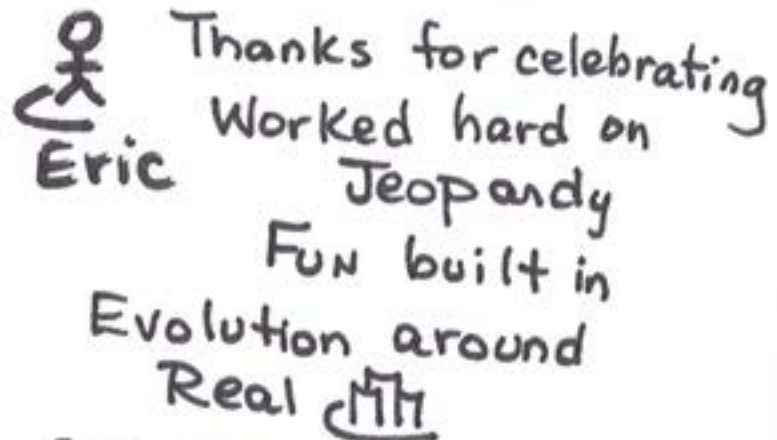 Thanks for celebrating
Worked hard on
Eric
Jeopandy
FUN built in
Evolution around
Real